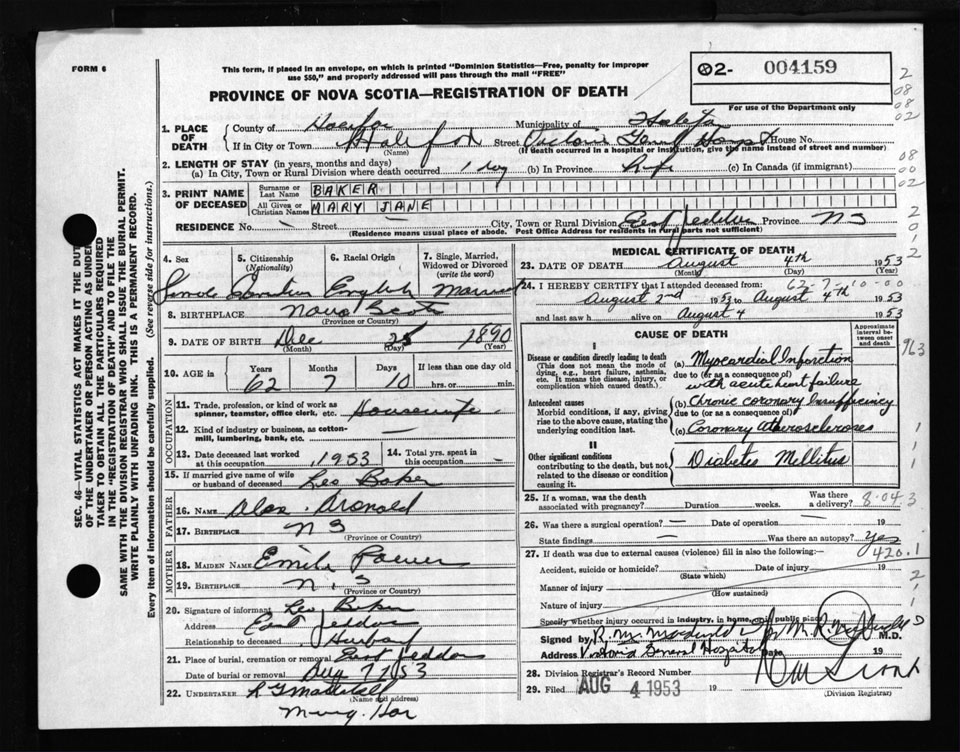 FORM 6
This form, if placed in an envelope, on which is printed "Dominion Statistics—Free, penalty for improper
use $50," and properly addressed will pass through the mail "FREE"
02- 004159
For use of the Department only
PROVINCE OF NOVA SCOTIA—REGISTRATION OF DEATH
1. PLACE OF DEATH
County of Halifax Municipality of Halifax
If in City or Town Halifax Street Victoria Genl Hospt House No.
(Name) (If death occurred in a hospital or institution, give the name instead of street and number)
2. LENGTH OF STAY (in years, months and days)
(a) In City, Town or Rural Division where death occurred 1 day (b) In Province Life (c) In Canada (if immigrant)
3. PRINT NAME OF DECEASED
Surname or Last Name BAKER
All Given or Christian Names MARY JANE
RESIDENCE No. — Street — City, Town or Rural Division East Jeddore Province NS
(Residence means usual place of abode. Post Office Address for residents in rural parts not sufficient)
4. Sex 5. Citizenship (Nationality) 6. Racial Origin 7. Single, Married, Widowed or Divorced (write the word)
Female Canadian English Married
8. BIRTHPLACE Nova Scotia
(Province or Country)
9. DATE OF BIRTH Dec 25 1890
(Month) (Day) (Year)
10. AGE Years Months Days If less than one day old
62 7 10 hrs. or min.
OCCUPATION
11. Trade, profession, or kind of work as
spinner, teamster, office clerk, etc. Housewife
12. Kind of industry or business, as cotton-
mill, lumbering, bank, etc. —
13. Date deceased last worked at this occupation 1953 14. Total yrs. spent in this occupation —
15. If married give name of wife
or husband of deceased Leo Baker
FATHER
16. NAME Alex. Aronold
17. BIRTHPLACE N S
(Province or Country)
MOTHER
18. MAIDEN NAME Power
19. BIRTHPLACE N. S
(Province or Country)
20. Signature of informant Leo Baker
Address East Jeddore
Relationship to deceased Husband
21. Place of burial, cremation or removal East Jeddore
Date of burial or removal Aug 7 1953
22. UNDERTAKER
(Name and address)
MEDICAL CERTIFICATE OF DEATH
23. DATE OF DEATH August 4th 1953
(Month) (Day) (Year)
24. I HEREBY CERTIFY that I attended deceased from: 62-7-10-00
August 2nd 1953 to August 4th 1953
and last saw h alive on August 4 1953
CAUSE OF DEATH
Approximate interval between onset and death
I
Disease or condition directly leading to death
(This does not mean the mode of
dying, e.g., heart failure, asthenia,
etc. It means the disease, injury, or
complication which caused death.)
(a) Myocardial Infarction
due to (or as a consequence of)
with acute heart failure
Antecedent causes
Morbid conditions, if any, giving
rise to the above cause, stating the
underlying condition last.
(b) Chronic coronary Insufficiency
due to (or as a consequence of)
(c) Coronary Atherosclerosis
II
Other significant conditions
contributing to the death, but not
related to the disease or condition
causing it.
Diabetes Mellitus
25. If a woman, was the death
associated with pregnancy? Duration weeks. Was there a delivery? 8.043
26. Was there a surgical operation? — Date of operation — 19
State findings — Was there an autopsy? Yes
420.1
27. If death was due to external causes (violence) fill in also the following:—
Accident, suicide or homicide? Date of injury 19
(State which)
Manner of injury
(How sustained)
Nature of injury
Specify whether injury occurred in industry, in home, or in public place
Signed by M.D.
Address Victoria General Hospital Date 19
28. Division Registrar's Record Number
29. Filed AUG 4 1953 19
(Division Registrar)
SEC. 46—VITAL STATISTICS ACT MAKES IT THE DUTY
OF THE UNDERTAKER OR PERSON ACTING AS UNDER-
TAKER TO OBTAIN ALL THE PARTICULARS REQUIRED
IN THE "REGISTRATION OF DEATH" AND TO FILE THE
SAME WITH THE DIVISION REGISTRAR WHO SHALL ISSUE THE BURIAL PERMIT.
WRITE PLAINLY WITH UNFADING INK. THIS IS A PERMANENT RECORD.
Every item of information should be carefully supplied. (See reverse side for instructions.)